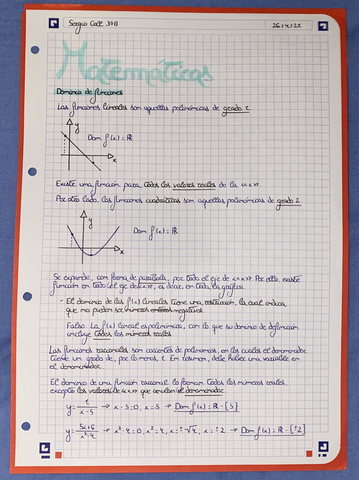 Sergio Code 3ºB
26/4/22
Matemáticas
Dominio de funciones
Las funciones lineales son aquellas polinómicas de grado 1
y
x
Dom f(x) = ℝ
Existe una función para todos los valores reales de la «x».
Por otro lado, las funciones cuadráticas son aquellas polinómicas de grado 2
y
x
Dom f(x) = ℝ
Se expande, con forma de parábola, por todo el eje de «x». Por ello, existe
función en todo el eje de «x», es decir, en toda la gráfica.
- El dominio de las f(x) lineales tiene una restricción, la cual indica
que no pueden ser números enteros negativos
Falso. La f(x) lineal es polinómica, con lo que su dominio de definición
incluye todos los números reales
Las funciones racionales son cocientes de polinomios, en las cuales el denominador
tiene un grado de, por lo menos, 1. En resumen, debe haber una variable en
el denominador.
El dominio de una función racional lo forman todos los números reales,
excepto los valores de «x» que anulan el denominador.
y = 1/(x-5) → x-5=0; x=5 → Dom f(x) = ℝ - {5}
y = (5x+6)/(x²-4) → x²-4=0; x²=4; x=±√4; x=±2 → Dom f(x) = ℝ - {±2}